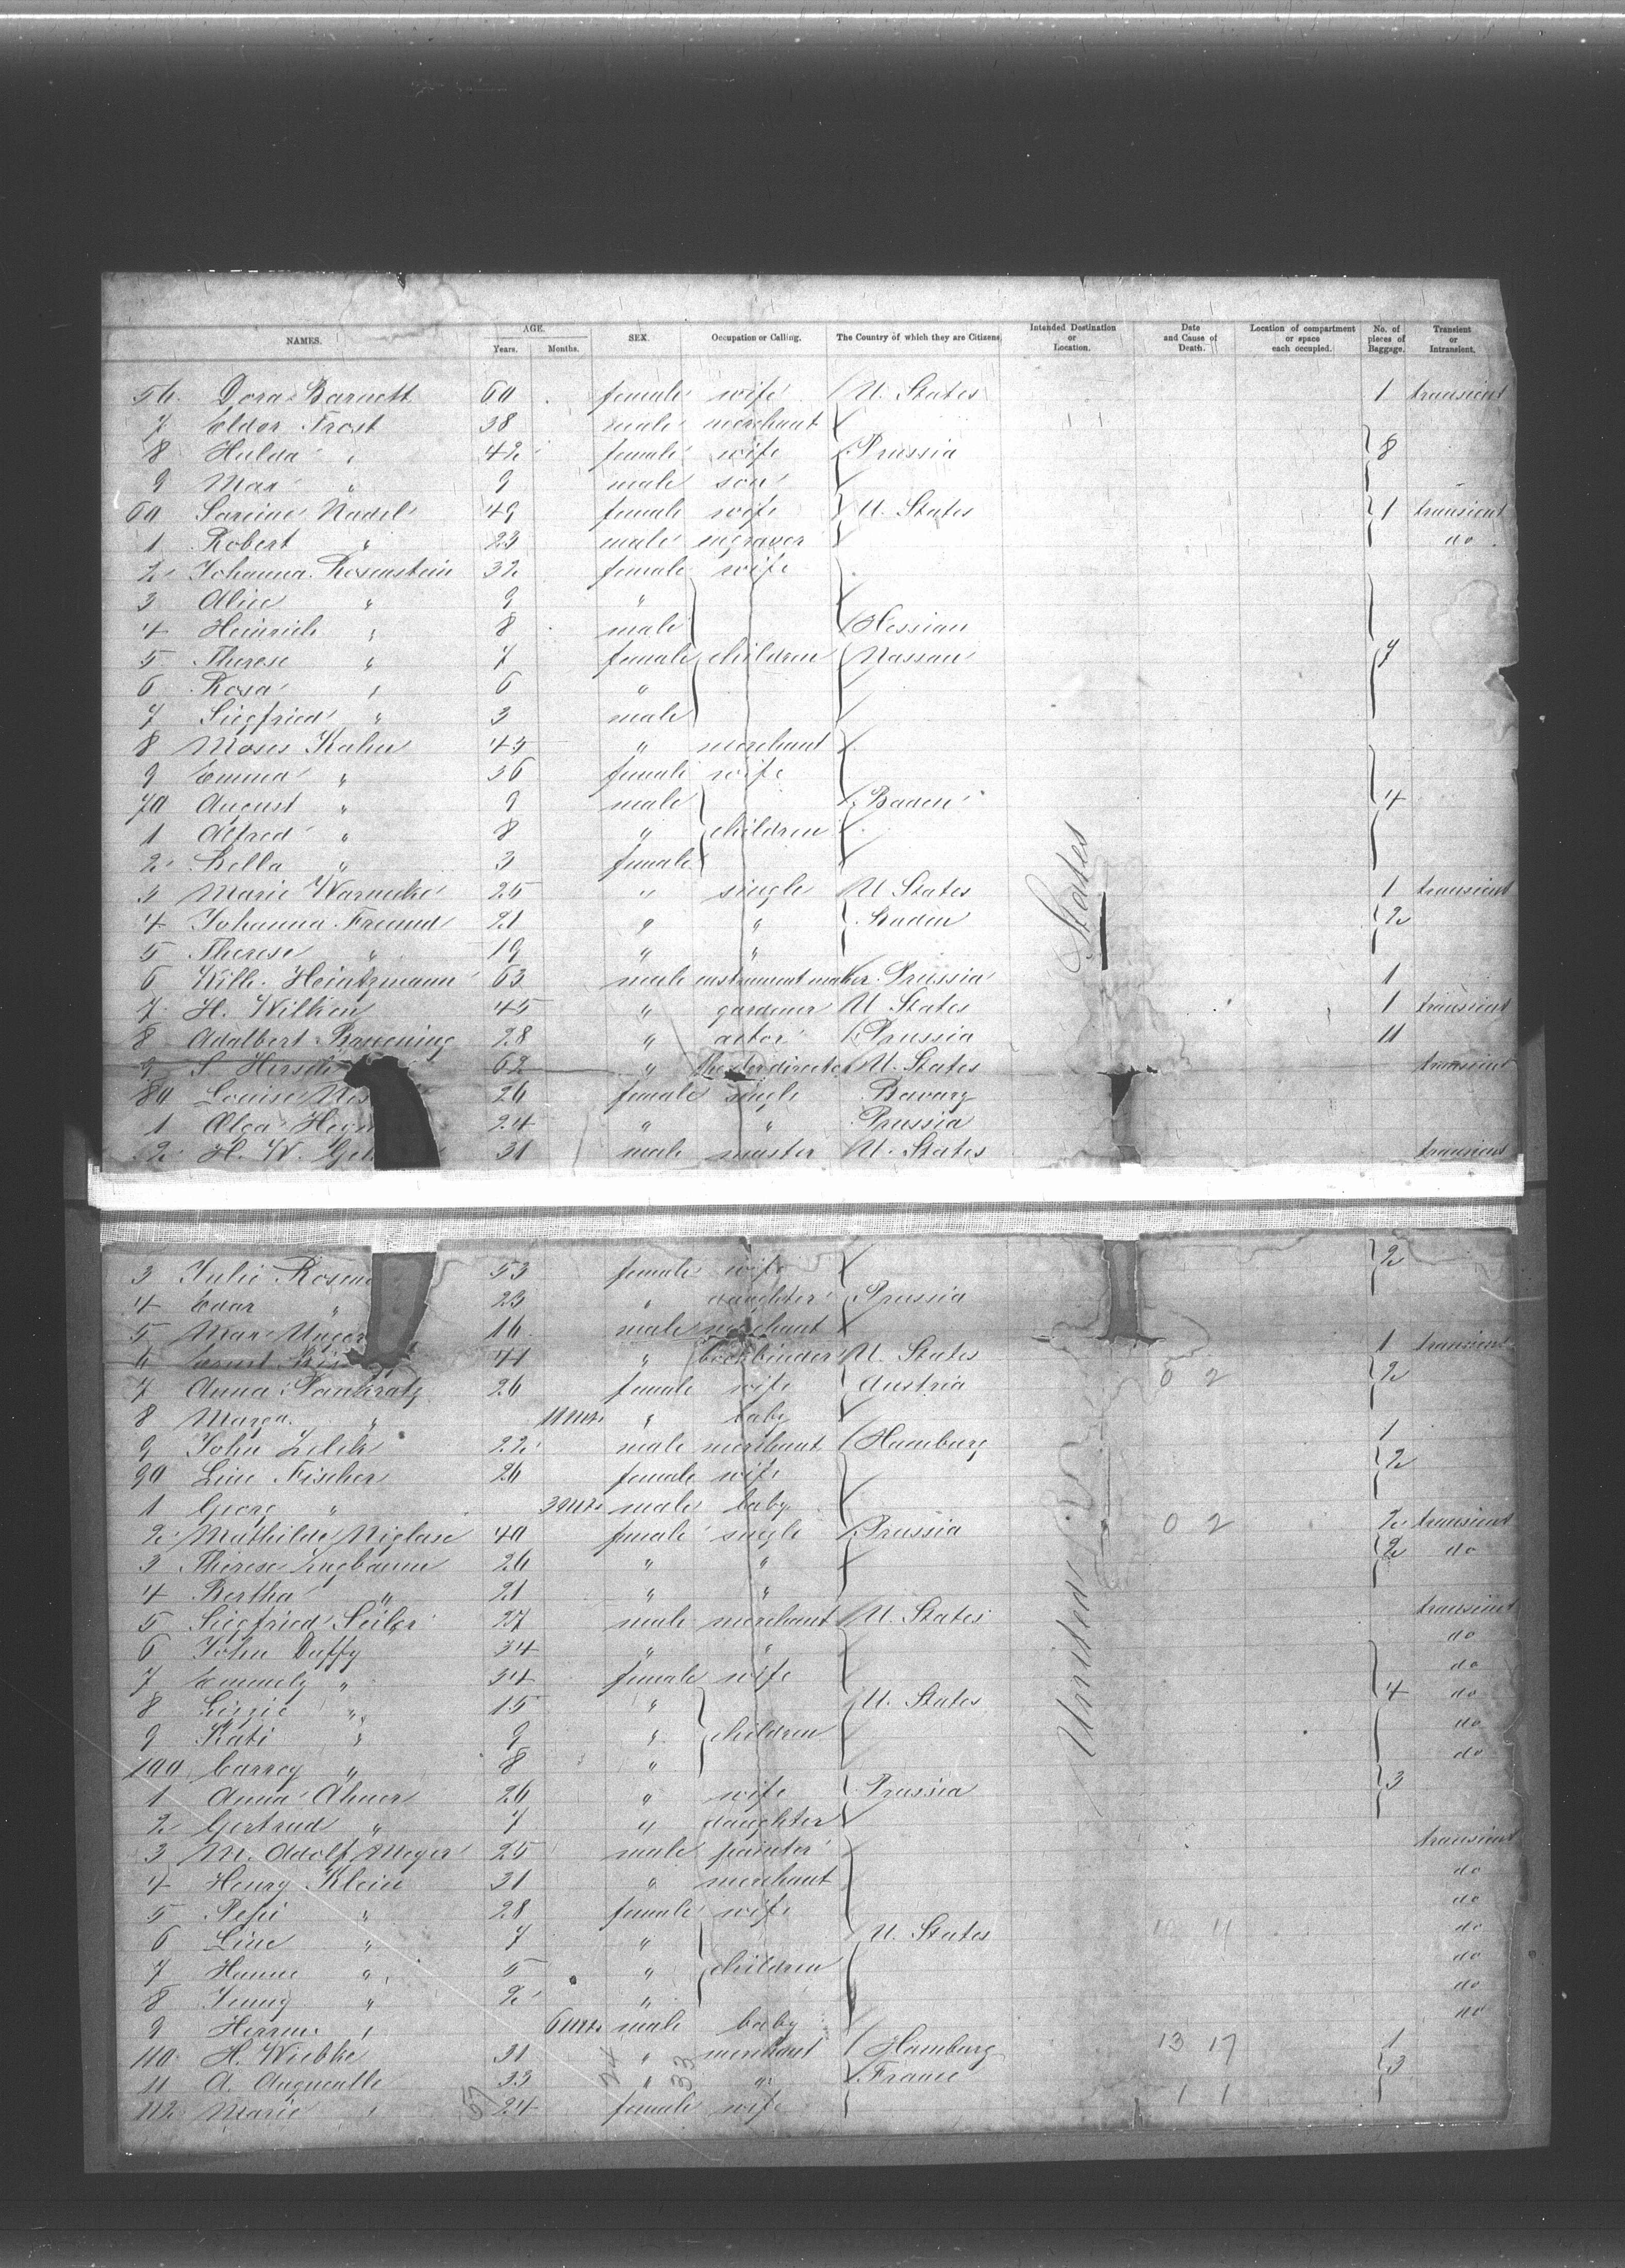 NAMES. AGE. Years. Months. SEX. Occupation or Calling. The Country of which they are Citizens. Intended Destination or Location. Date and Cause of Death. Location of compartment or space each occupied. No. of pieces of Baggage. Transient or Intransient.
56 Dora Barnett 60 female wife U. States 1 transient
7 Eldor Frost 38 male merchant
8 Hulda " 42 female wife Prussia 8
9 Max " 9 male son
60 Nadel 49 female wife U. States 1 transient
1 Robert " 23 male engraver do
2 Johanna Rosenstein 32 female wife
3 Alice " 9 "
4 Heinrich " 8 male Hessian
5 Therese " 7 female children Nassau 7
6 Rosa " 6 "
7 Siegfried " 3 male
8 Moses Kahn 45 " merchant
9 Emma " 36 female wife
70 August " 9 male Baden 4
1 Alfred " 8 " children
2 Bella " 3 female
3 Marie Warnecke 25 " single U States 1 transient
4 Johanna Freund 21 " " Baden 2
5 Therese " 19 " "
6 Wilh. Heintzmann 63 male instrument maker Prussia 1
7 H. Wilkien 45 " gardener U States 1 transient
8 Adalbert 28 " actor Prussia 11
9 S Hersch 62 " theaterdirector U. States transient
80 Louise 26 female single Bavary
1 Olga 24 " " Prussia
2 H. W. 31 male master U. States transient
3 Julie 53 female wife 2
4 " 23 " daughter Prussia
5 Max Unger 16 male merchant
6 Ernst 41 " bookbinder U. States 1 transient
7 Anna Pankratz 26 female wife Austria 0 2 2
8 Marga " 11 mts " baby
9 John 22 male merchant Hamburg 1
90 Line Fischer 26 female wife 2
1 Georg " male baby
2 Mathilde 40 female single Prussia 0 2 2 transient
3 Therese 26 " " 2 do
4 Bertha " 21 " "
5 Siegfried Seiler 27 male merchant U. States transient
6 John Duffy 34 " " do
7 Emmely " 34 female wife do
8 Lizzie " 15 " U. States 4 do
9 Kati " 9 " children do
100 Carrey " 8 " do
1 Anna 26 " wife Prussia 3
2 Gertrud " 7 " daughter
3 M. Adolf Meyer 25 male painter transient
4 Henry Klein 31 " merchant do
5 Pepi " 28 female wife do
6 Line " 7 " U. States do
7 Hanne " 5 " children do
8 Jenny " 2 " do
9 Herrm. " 6 mts male baby do
110 H. Wiebke 31 " merchant Hamburg 13 17 1
11 A. 33 " " France 3
112 Marie " 24 female wife 1 1
United States
24 33
57